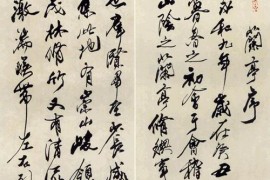 蘭亭序
永和九年歲在癸丑
暮春之初會于會稽
山陰之蘭亭脩禊事
也羣賢畢至少長咸
集此地有崇山峻領
茂林脩竹又有清流
激湍暎帶左右